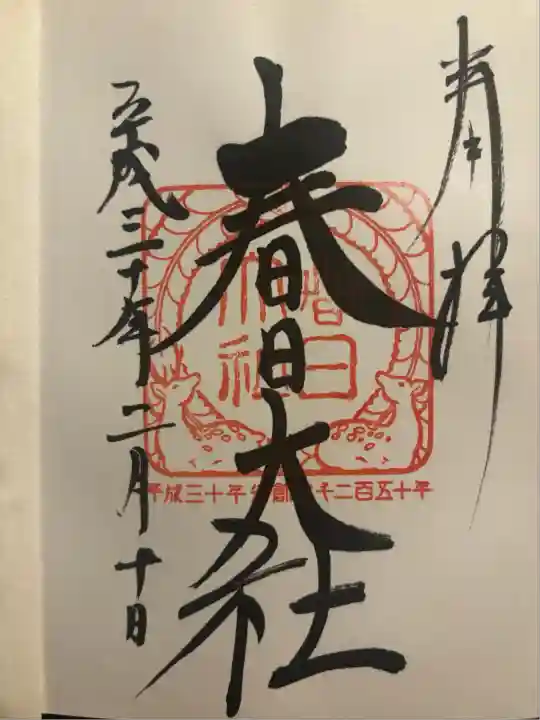 奉拝
春日大社
春日
大社
平成三十年 御創建千二百五十年
平成三十年二月十日